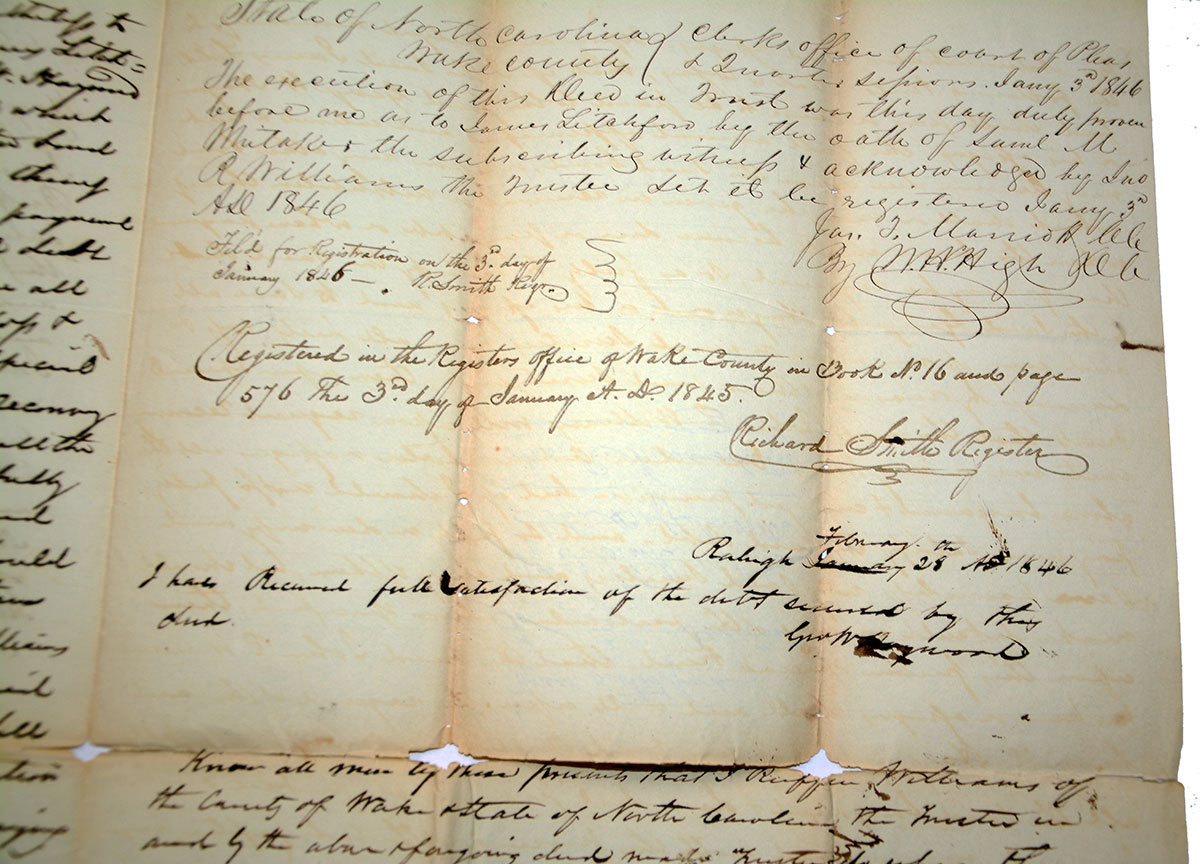 State of North Carolina } Clerks office of court of Pleas
Wake County } & Quarter sessions. Jany 3d 1846
The execution of this Deed in Trust was this day duly proven
before me as to James Litchford by the oath of Saml M
Whitaker the subscribing witness & acknowledged by Jno
R Williams the Trustee Let it be registered Jany 3d
AD 1846
Jas. T. Marriott CLC
By N. H. High DC
Fil'd for Registration on the 3d. day of
January 1846 —. R. Smith Regr.
Registered in the Registers office of Wake County in Book No. 16 and page
576 The 3rd. day of January A. D. 1845.
Richard Smith Register
February th
Raleigh January 28 AD 1846
I have Received full satisfaction of the debt secured by this
deed.
Geo W Haywood
Know all men by these presents that I Ruffin Williams of
the County of Wake & State of North Carolina the Trustee in
and by the above & foregoing deed made Trustee
witness to
Haywood
which
thing
payment
debt
all
&
special
reconvey
all the
fully
would
Williams